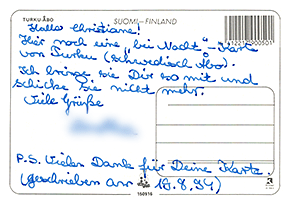 TURKU ÅBO
SUOMI-FINLAND
Hallo Christiane!
Hier noch eine „bei Nacht"-Karte
von Turku (schwedisch Åbo).
Ich bringe sie Dir so mit und
schicke sie nicht mehr.
Viele Grüße
P.S. Vielen Dank für Deine Karte.
(geschrieben am 18.8.94)
160916